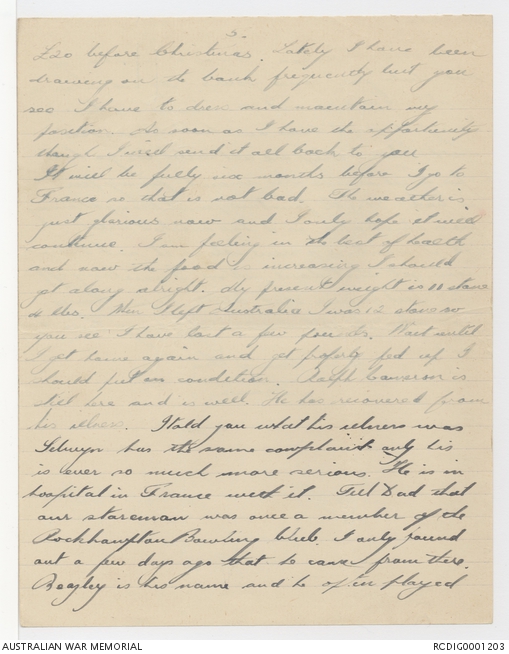 3.
£20 before Christmas. Lately I have been
drawing on the bank frequently but you
see I have to dress and maintain my
position. As soon as I have the opportunity
though I will send it all back to you
It will be fully six months before I go to
France so that is not bad. The weather is
just glorious now and I only hope it will
continue. I am feeling in the best of health
and now the food is increasing I should
get along alright. My present weight is 11 stone
4 lbs. When I left Australia I was 12 stone so
you see I have lost a few pounds. Wait until
I get home again and get properly fed up I
should put on condition. Ralph Cameron is
still here and is well. He has recovered from
his illness. I told you what his illness was
Selwyn has the same complaint only his
is ever so much more serious. He is in
hospital in France with it. Tell Dad that
our storeman was once a member of the
Rockhampton Bowling Club. I only found
out a few days ago that he came from there.
Beazley is his name and he often played
AUSTRALIAN WAR MEMORIAL
RCDIG0001203